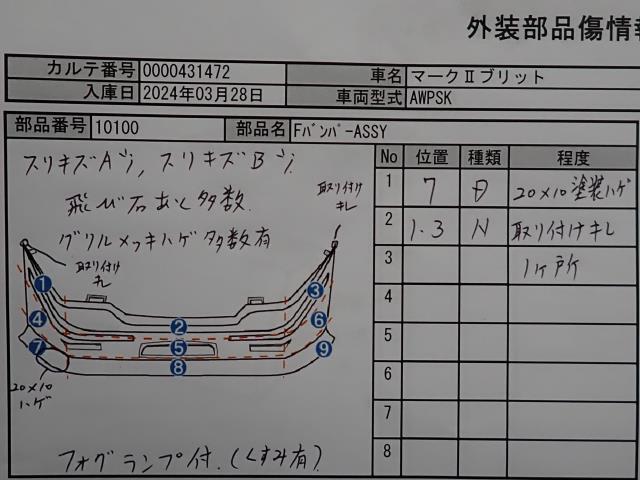 外装部品傷情報
カルテ番号 0000431472 車名 マークⅡブリット
入庫日 2024年03月28日 車両型式 AWPSK
部品番号 10100 部品名 Fバンパ-ASSY
スリキズA小, スリキズB小
飛び石あと多数
グリルメッキハゲ多数有
取り付け
キレ
取り付け
キレ
1
2
3
4
5
6
7
8
9
20×10
ハゲ
フォグランプ付.(くすみ有)
No 位置 種類 程度
1 7 日 20×10塗装ハゲ
2 1.3 N 取り付けキレ
3 1ヶ所
4
5
6
7
8